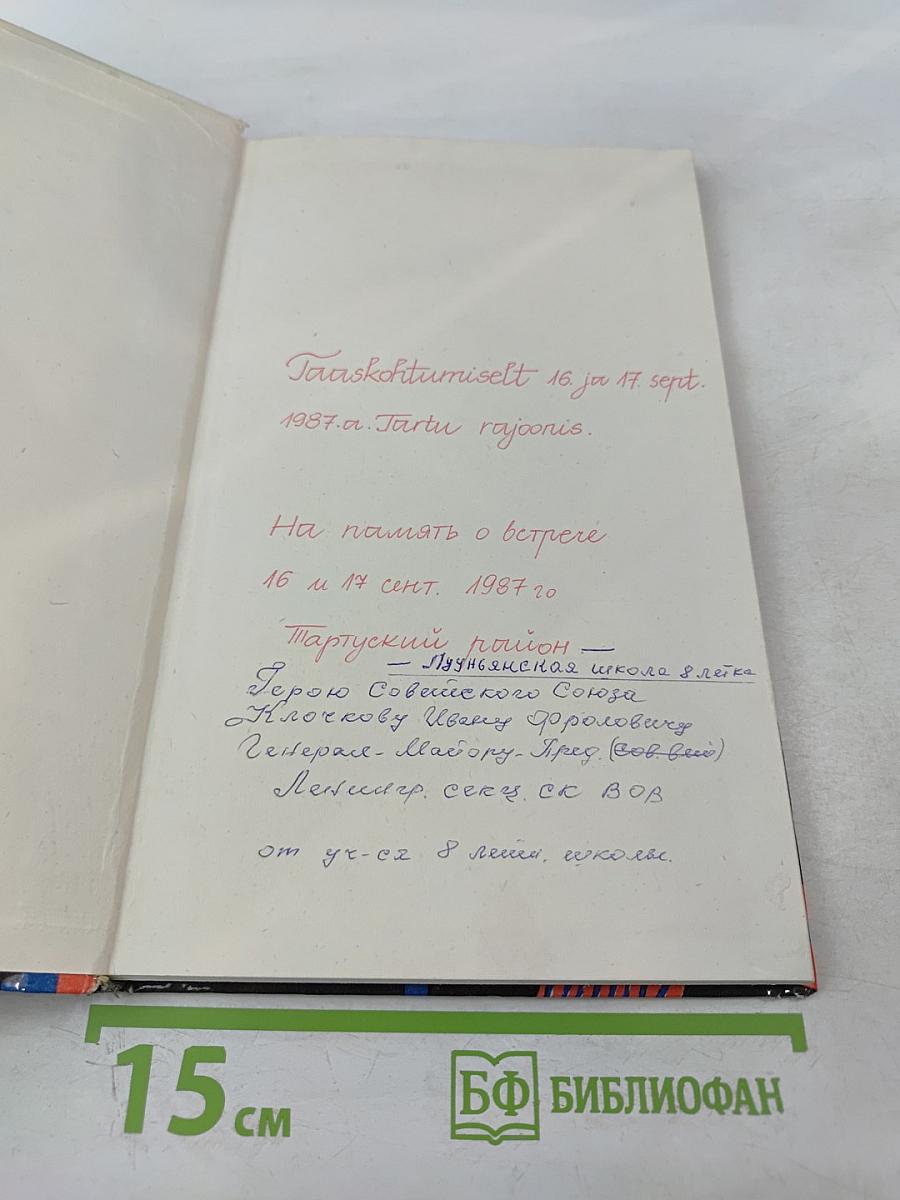 Taaskohtumiselt 16. ja 17. sept.
1987.a. Tartu rajoonis.
На память о встрече
16 и 17 сент. 1987 го
Тартуский район —
— Лууньянская школа 8 летка
Герою Советского Союза
Клочкову Ивану Фроловичу
Генерал-Майору-Пред. (сов. вет)
Ленингр. секц. СК ВОВ
от уч-ся 8 летн. школы.
15 см
БФ БИБЛИОФАН